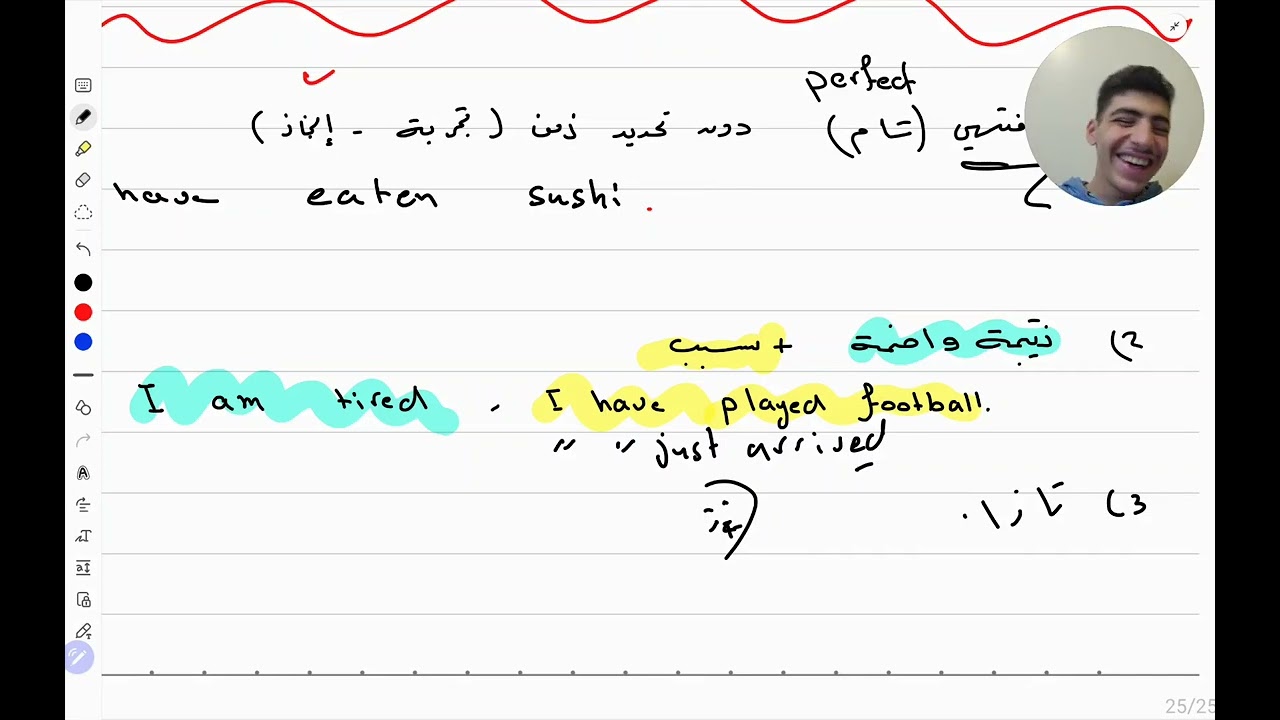 perfect
منتهي (تام) دون تحديد زمن (تجربة - إنجاز)
have eaten sushi.
2) نتيجة واضحة + سبب
I am tired . I have played football.
" " just arrived
3)
25/25